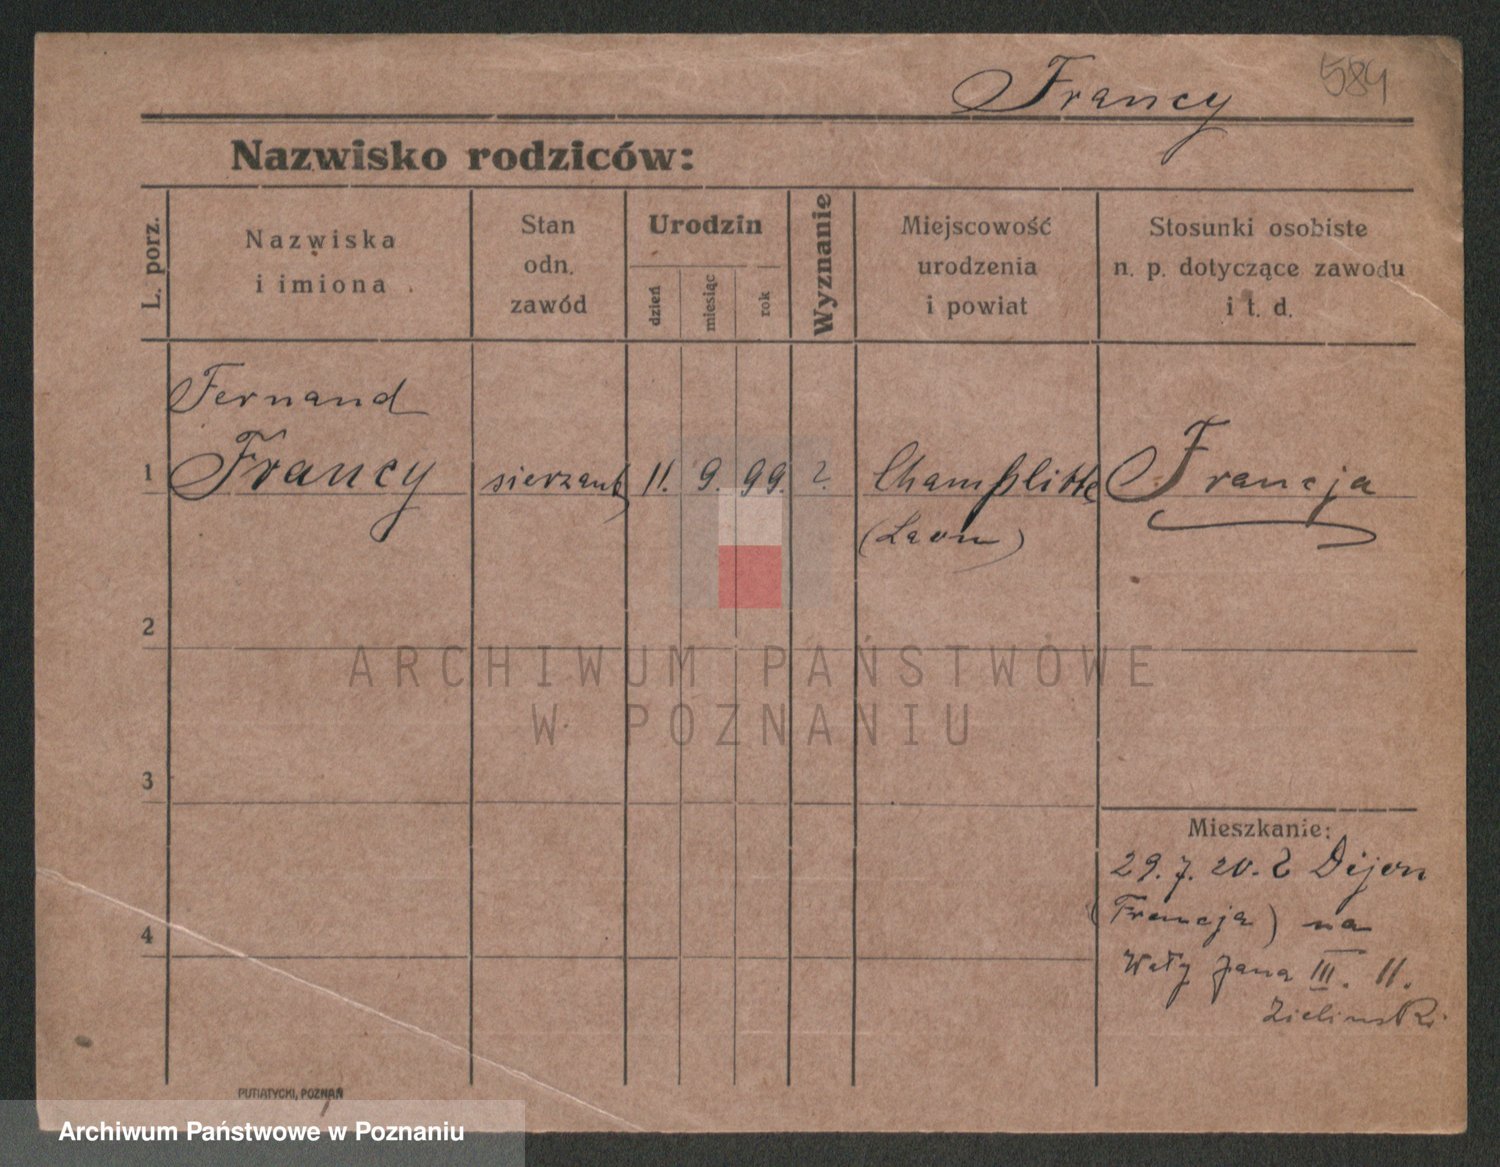 Francy
584
Nazwisko rodziców:
L. porz.
Nazwiska
i imiona
Stan
odn.
zawód
Urodzin
dzień
miesiąc
rok
Wyznanie
Miejscowość
urodzenia
i powiat
Stosunki osobiste
n. p. dotyczące zawodu
i t. d.
Fernand
1 Francy sierzant 11. 9. 99. ?. Champlitte Francja
(Laon)
2
3
4
Mieszkanie:
29. 7. 20. z Dijon
(Francja) na
Wały Jana III. 11.
Zielinski
PUTIATYCKI, POZNAŃ
ARCHIWUM PAŃSTWOWE
W POZNANIU
Archiwum Państwowe w Poznaniu